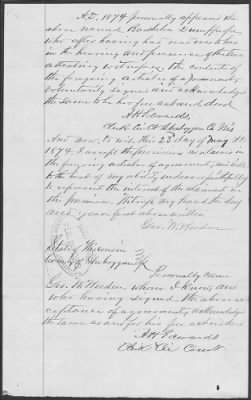 A.D. 1874 personally appeared the
above named
who after having had read over to her
in the hearing and presence of the two
attesting witnesses the contents
of the foregoing articles of agreement,
voluntarily signed and acknowledged
the same to be her free act and deed
A H Edwards,
Clerk Cir Ct Sheboygan Co Wis
And now, to wit, this 23d day of A.D.
1874, I accept the provisions contained in
the foregoing articles of agreement, and will
to the best of my ability endeavor faithfully
to represent the interest of the claimant in
the premises. Witness my hand the day
and year first above written
Geo. W. Weeden
State of Wisconsin
County of Sheboygan
Personally came
Geo. W. Weeden whom I know and
who having signed the above ac-
ceptance of agreement, acknowledged
the same as and for his free act and deed
A H Edwards
Clerk Cir Court